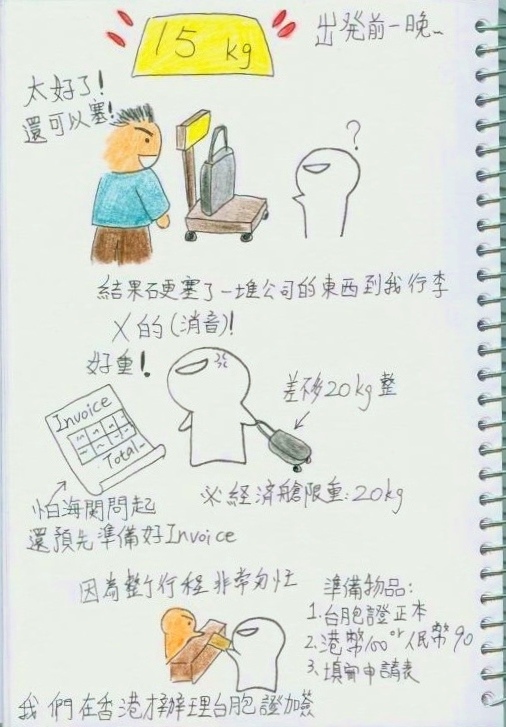 15 kg
出発前一晚~
太好了!
還可以塞!
?
結果硬塞了一堆公司的東西到我行李
X的(消音)!
好重!
差不多20kg整
Invoice
Total~
※經済艙限重:20kg
怕海関問起
還預先準備好Invoice
因為整個行程非常匆忙
準備物品:
1.台胞證正本
2.港幣100 or 人民幣90
3.填寫申請表
我們在香港才辦理台胞證加簽